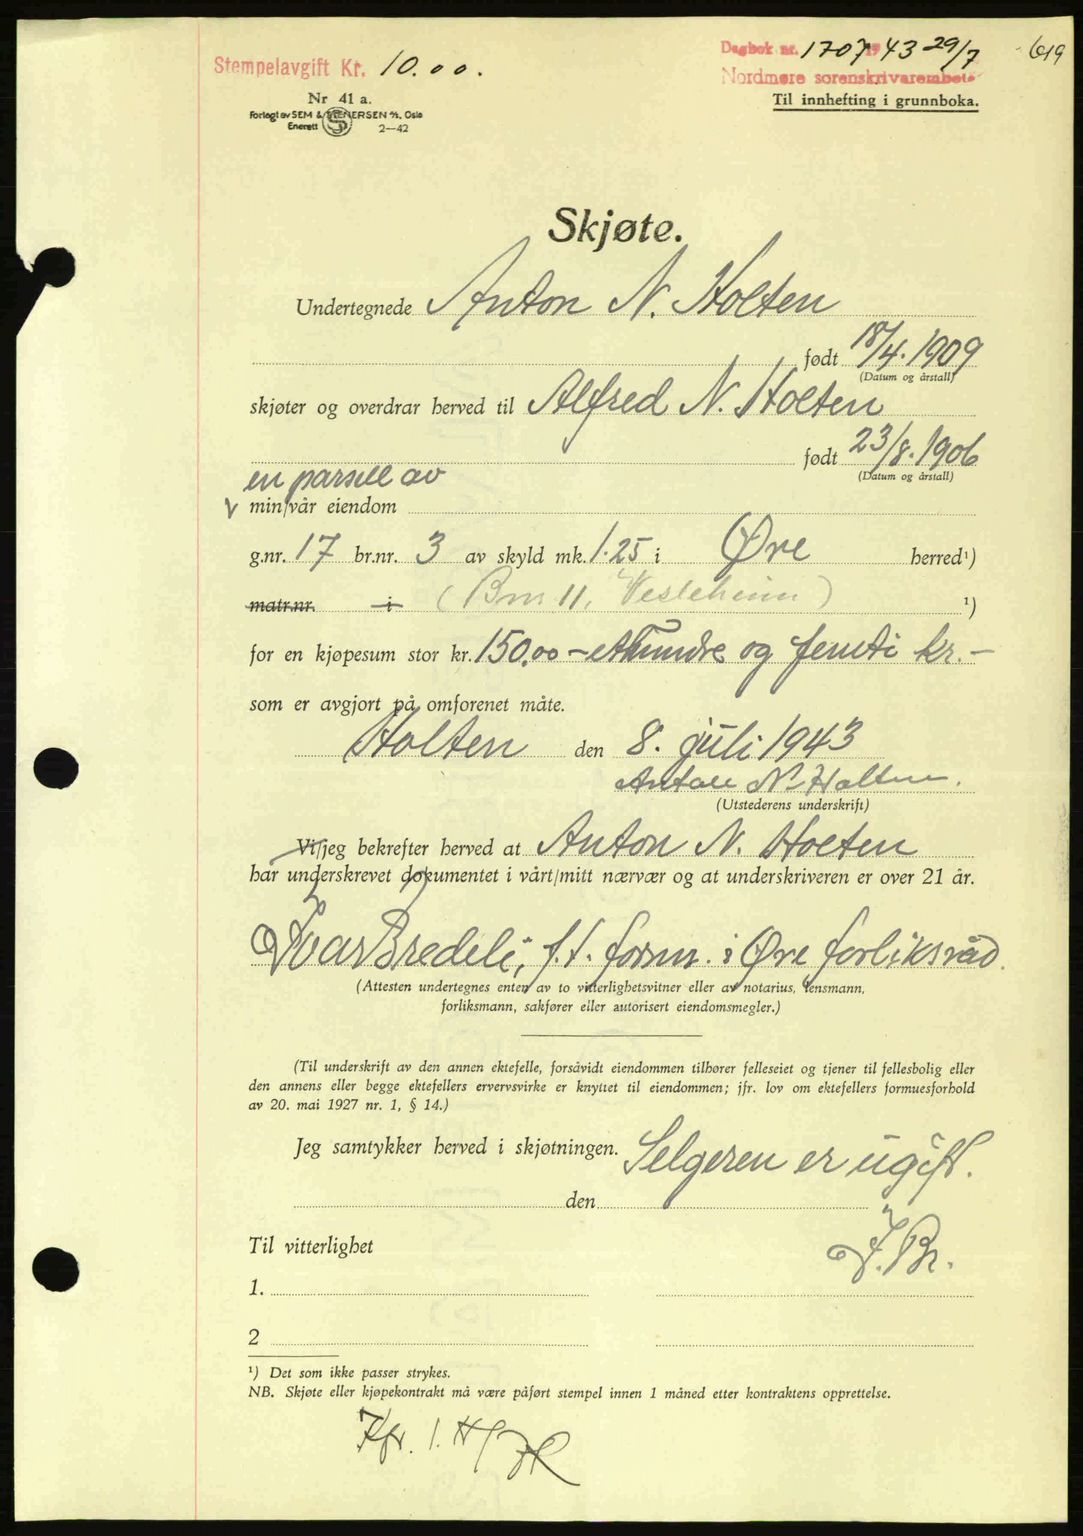 Stempelavgift Kr. 10.00.
Dagbok nr. 1707 1943 29/7
619
Nordmøre sorenskrivarembete
Til innhefting i grunnboka.
Nr 41 a.
Forlagt av SEM & STENERSEN A/S, Oslo
Enerett 2—42
Skjøte.
Undertegnede Anton N. Holten
født 18/4. 1909
(Datum og årstall)
skjøter og overdrar herved til Alfred N. Holten
født 23/8. 1906
(Datum og årstall)
en parsell av
min/vår eiendom
g.nr. 17 br.nr. 3 av skyld mk. 1.25 i Øre herred¹)
matr.nr. i (Brnr 11, Vesleheim) ¹)
for en kjøpesum stor kr. 150.00 – etthundre og femti kr. –
som er avgjort på omforenet måte.
Holten den 8. juli 1943
Anton N. Holten.
(Utstederens underskrift)
Vi/jeg bekrefter herved at Anton N. Holten
har underskrevet dokumentet i vårt/mitt nærvær og at underskriveren er over 21 år.
Ivar Bredeli, f.t. form. i Øre forliksråd.
(Attesten undertegnes enten av to vitterlighetsvitner eller av notarius, lensmann,
forliksmann, sakfører eller autorisert eiendomsmegler.)
(Til underskrift av den annen ektefelle, forsåvidt eiendommen tilhører felleseiet og tjener til fellesbolig eller
den annens eller begge ektefellers ervervsvirke er knyttet til eiendommen; jfr. lov om ektefellers formuesforhold
av 20. mai 1927 nr. 1, § 14.)
Jeg samtykker herved i skjøtningen. Selgeren er ugift.
den
I. Br.
Til vitterlighet
1.
2
¹) Det som ikke passer strykes.
NB. Skjøte eller kjøpekontrakt må være påført stempel innen 1 måned etter kontraktens opprettelse.